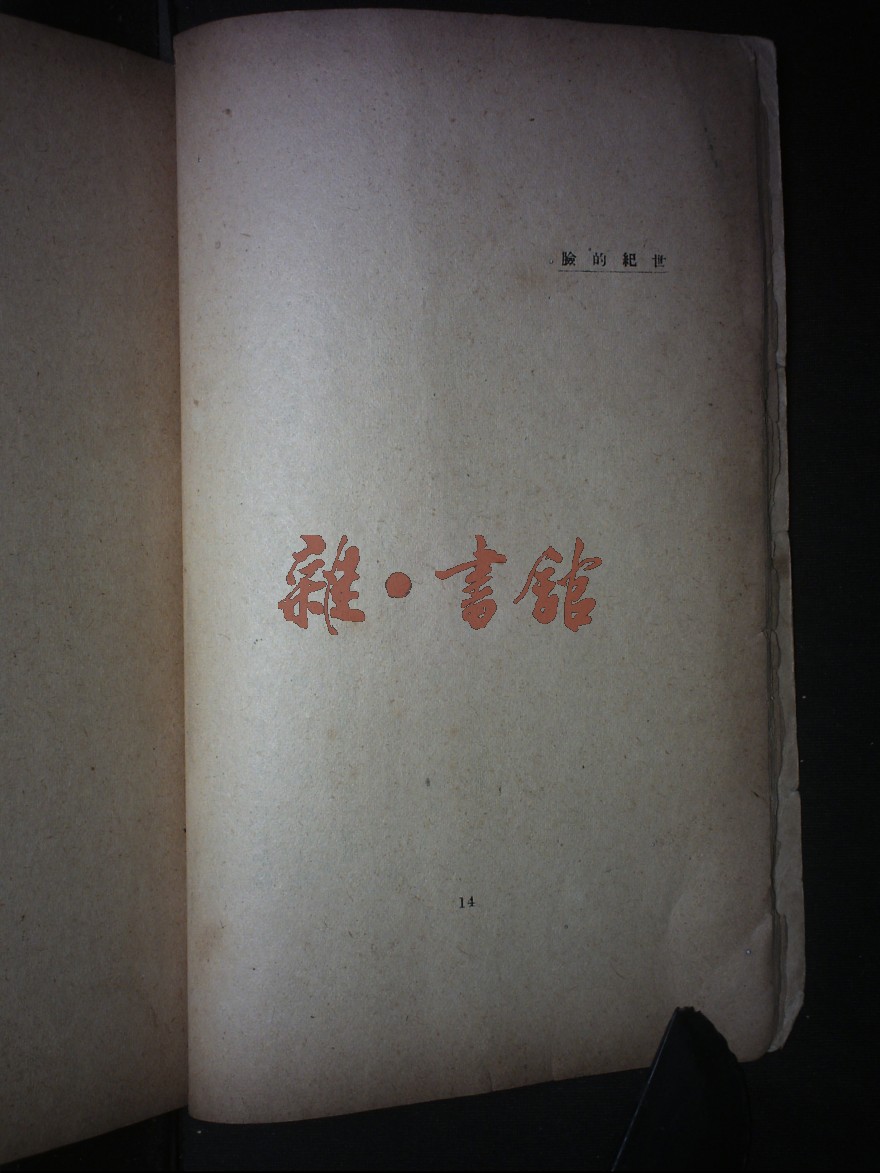 世紀的臉
雜·書館
14